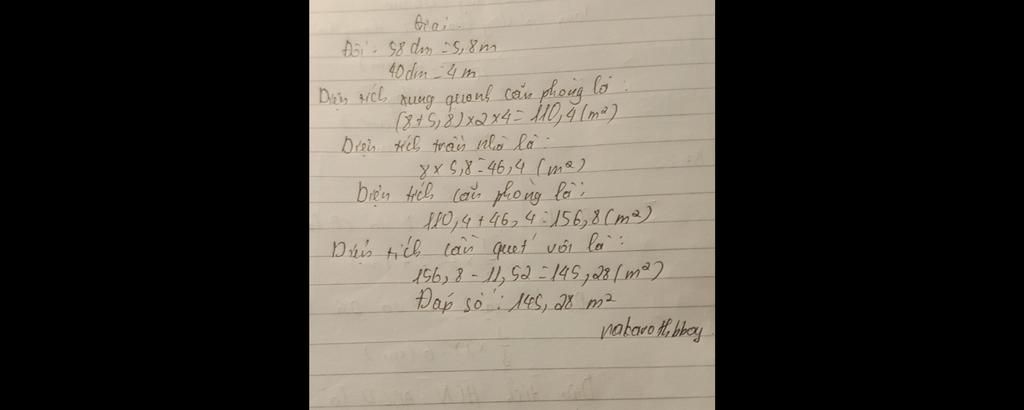 Giải:
Đổi: 58 dm = 5,8 m
40 dm = 4 m
Diện tích xung quanh căn phòng là:
(8+5,8)×2×4 = 110,4 (m²)
Diện tích trần nhà là:
8 × 5,8 = 46,4 (m²)
Diện tích căn phòng là:
110,4 + 46,4 = 156,8 (m²)
Diện tích cần quét vôi là:
156,8 - 11,52 = 145,28 (m²)
Đáp số: 145,28 m²